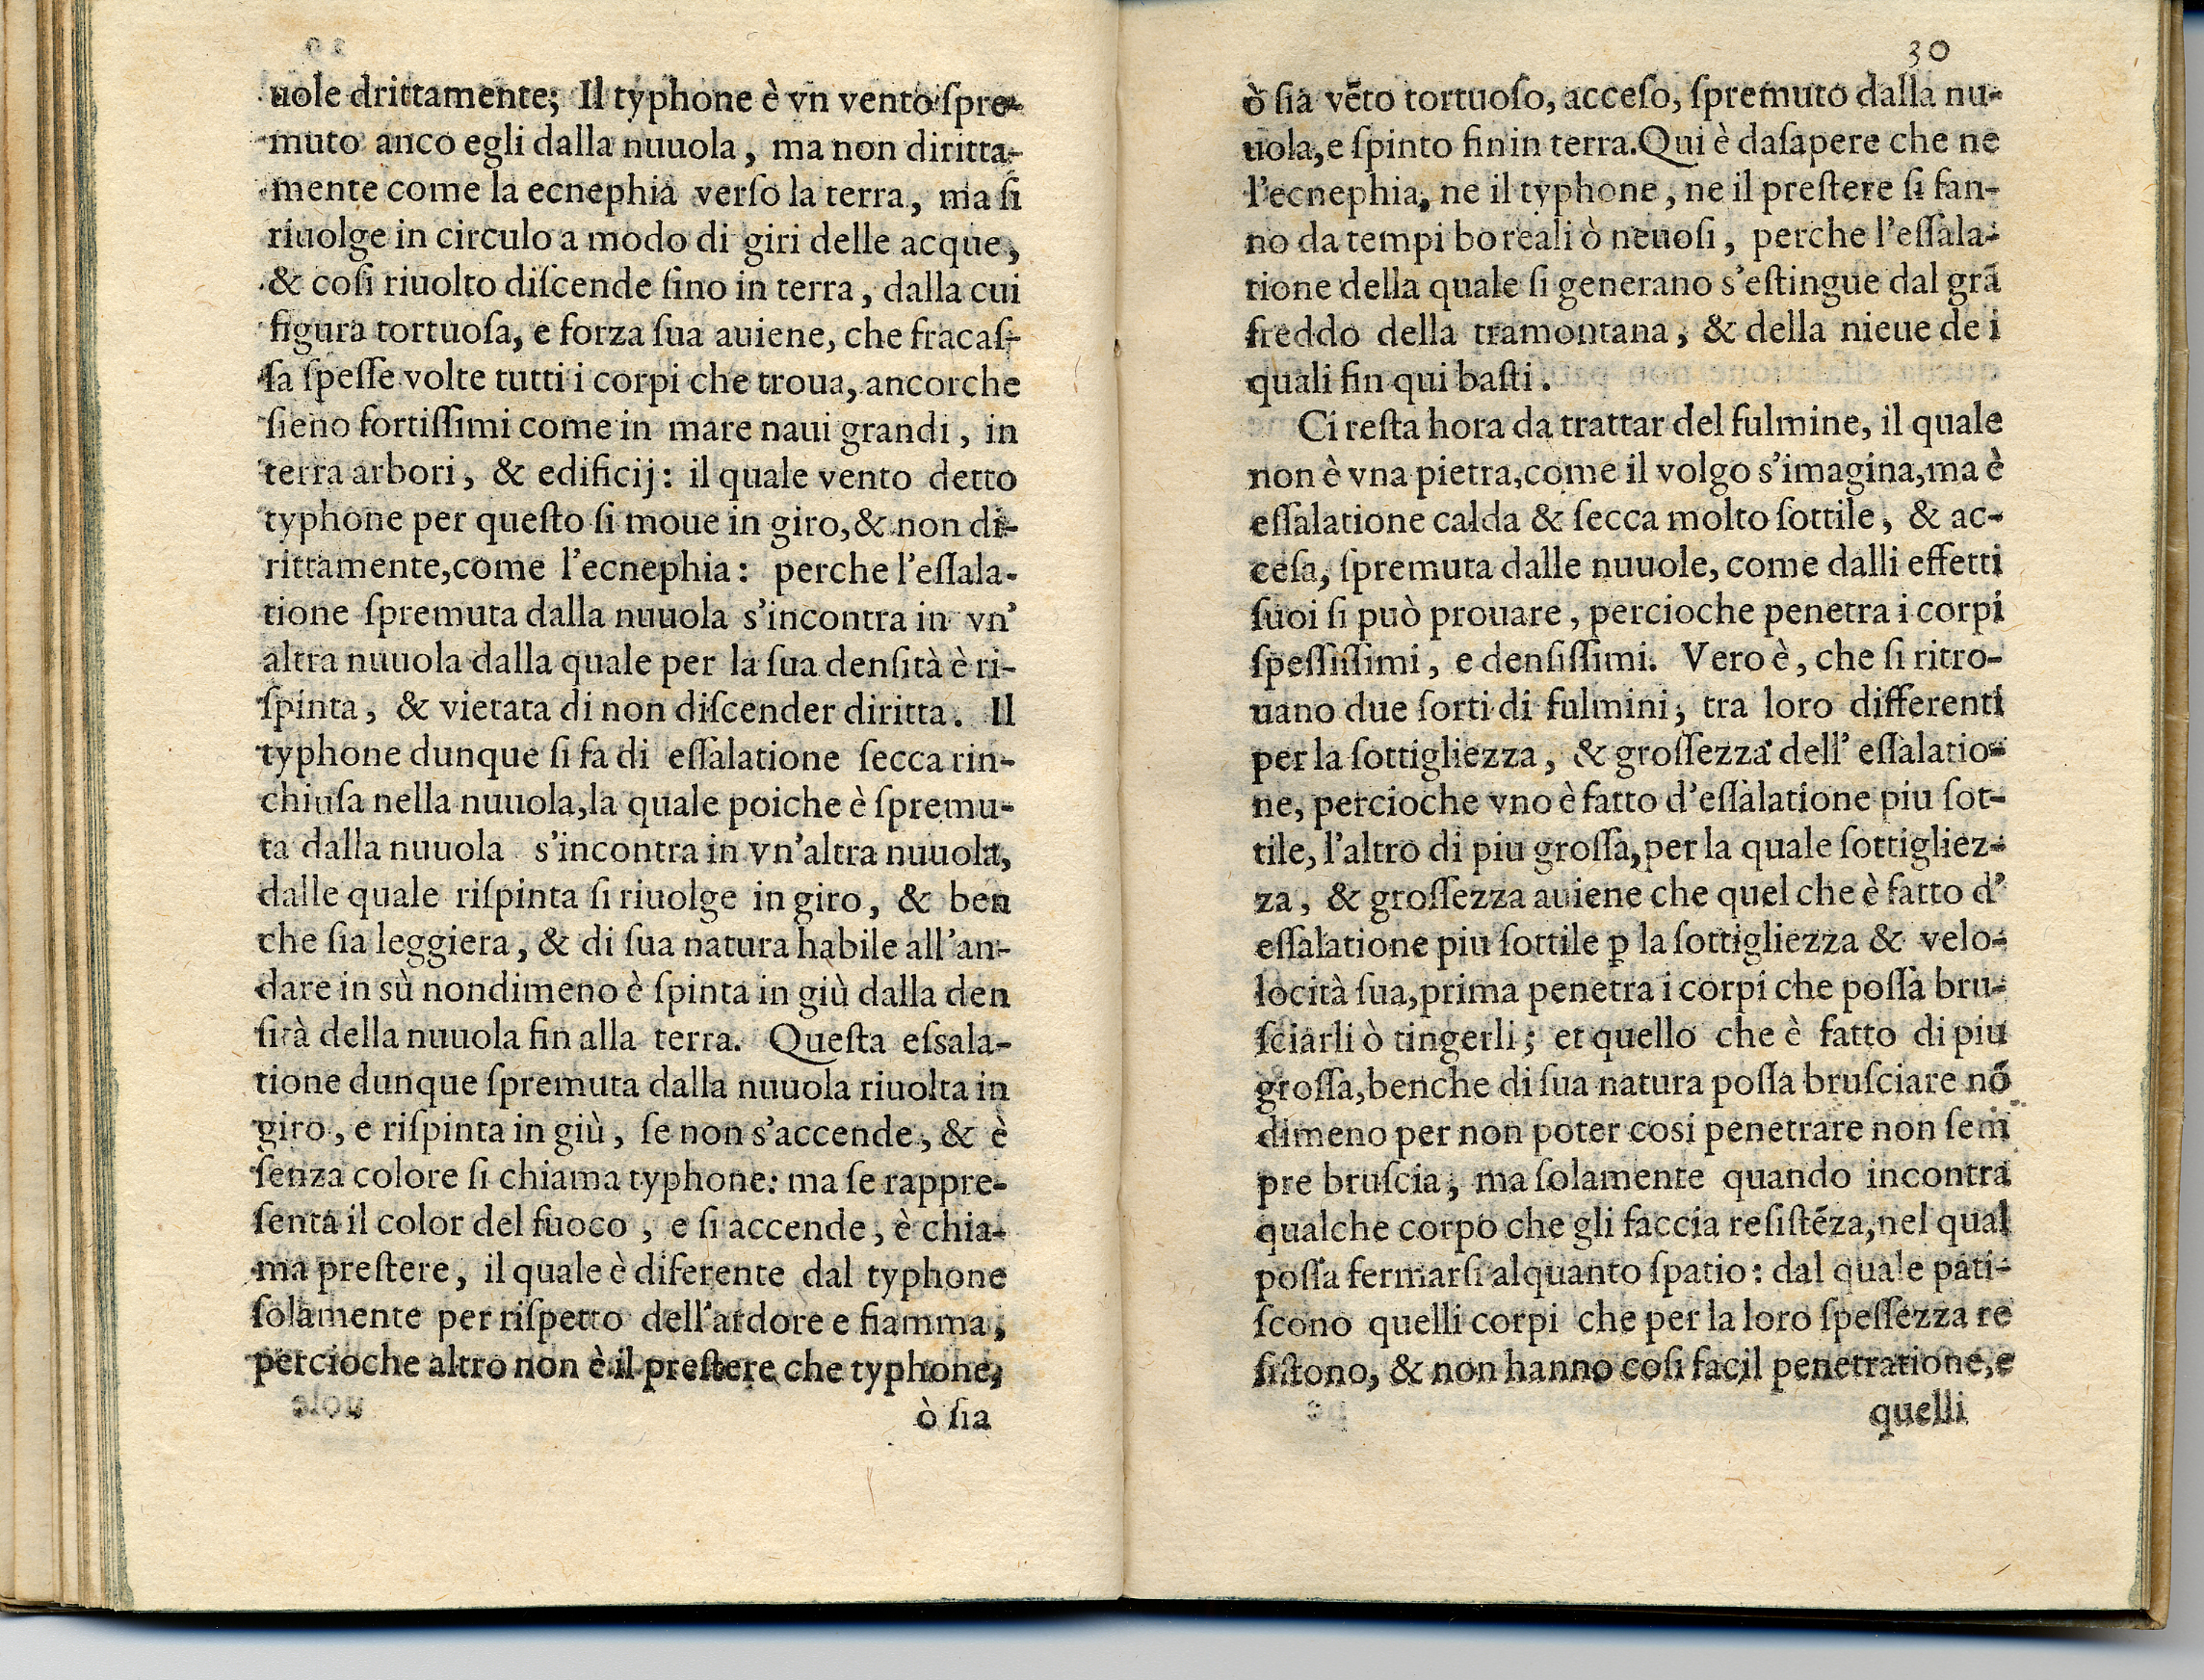 uole drittamente; Il typhone è vn vento ſpre-
muto anco egli dalla nuuola, ma non diritta-
mente come la ecnephia verſo la terra, ma ſi
riuolge in circulo a modo di giri delle acque,
& coſi riuolto diſcende ſino in terra, dalla cui
figura tortuoſa, e forza ſua auiene, che fracaſ-
ſa ſpeſſe volte tutti i corpi che troua, ancorche
ſieno fortiſſimi come in mare naui grandi, in
terra arbori, & edificij: il quale vento detto
typhone per queſto ſi moue in giro, & non di-
rittamente, come l'ecnephia: perche l'eſſala-
tione ſpremuta dalla nuuola s'incontra in vn'
altra nuuola dalla quale per la ſua denſità è ri-
ſpinta, & vietata di non diſcender diritta. Il
typhone dunque ſi fa di eſſalatione ſecca rin-
chiuſa nella nuuola, la quale poiche è ſpremu-
ta dalla nuuola s'incontra in vn'altra nuuola,
dalle quale riſpinta ſi riuolge in giro, & ben
che ſia leggiera, & di ſua natura habile all'an-
dare in sù nondimeno è ſpinta in giù dalla den
ſità della nuuola fin alla terra. Queſta eſsala-
tione dunque ſpremuta dalla nuuola riuolta in
giro, e riſpinta in giù, ſe non s'accende, & è
ſenza colore ſi chiama typhone: ma ſe rappre-
ſenta il color del fuoco, e ſi accende, è chia-
ma preſtere, il quale è diferente dal typhone
ſolamente per riſpetto dell'ardore e fiamma,
percioche altro non è il preſtere che typhone,
ò ſia
30
ò ſia vẽto tortuoſo, acceſo, ſpremuto dalla nu-
uola, e ſpinto fin in terra. Qui è da ſapere che ne
l'ecnephia, ne il typhone, ne il preſtere ſi fan-
no da tempi boreali ò neuoſi, perche l'eſſala-
tione della quale ſi generano s'eſtingue dal grã
freddo della tramontana, & della nieue de i
quali fin qui baſti.
Ci reſta hora da trattar del fulmine, il quale
non è vna pietra, come il volgo s'imagina, ma è
eſſalatione calda & ſecca molto ſottile, & ac-
ceſa, ſpremuta dalle nuuole, come dalli effetti
ſuoi ſi può prouare, percioche penetra i corpi
ſpeſſiſſimi, e denſiſſimi. Vero è, che ſi ritro-
uano due ſorti di fulmini, tra loro differenti
per la ſottigliezza, & groſſezza dell' eſſalatio-
ne, percioche vno è fatto d'eſſalatione piu ſot-
tile, l'altro di piu groſſa, per la quale ſottigliez-
za, & groſſezza auiene che quel che è fatto d'
eſſalatione piu ſottile ꝑ la ſottigliezza & velo-
locità ſua, prima penetra i corpi che poſſa bru-
ſciarli ò tingerli; et quello che è fatto di piu
groſſa, benche di ſua natura poſſa bruſciare nõ
dimeno per non poter cosi penetrare non ſem
pre bruſcia, ma ſolamente quando incontra
qualche corpo che gli faccia reſiſtẽza, nel qual
poſſa fermarſi alquanto ſpatio: dal quale pati-
ſcono quelli corpi che per la loro ſpeſſezza re
ſiſtono, & non hanno coſi facil penetratione, e
quelli